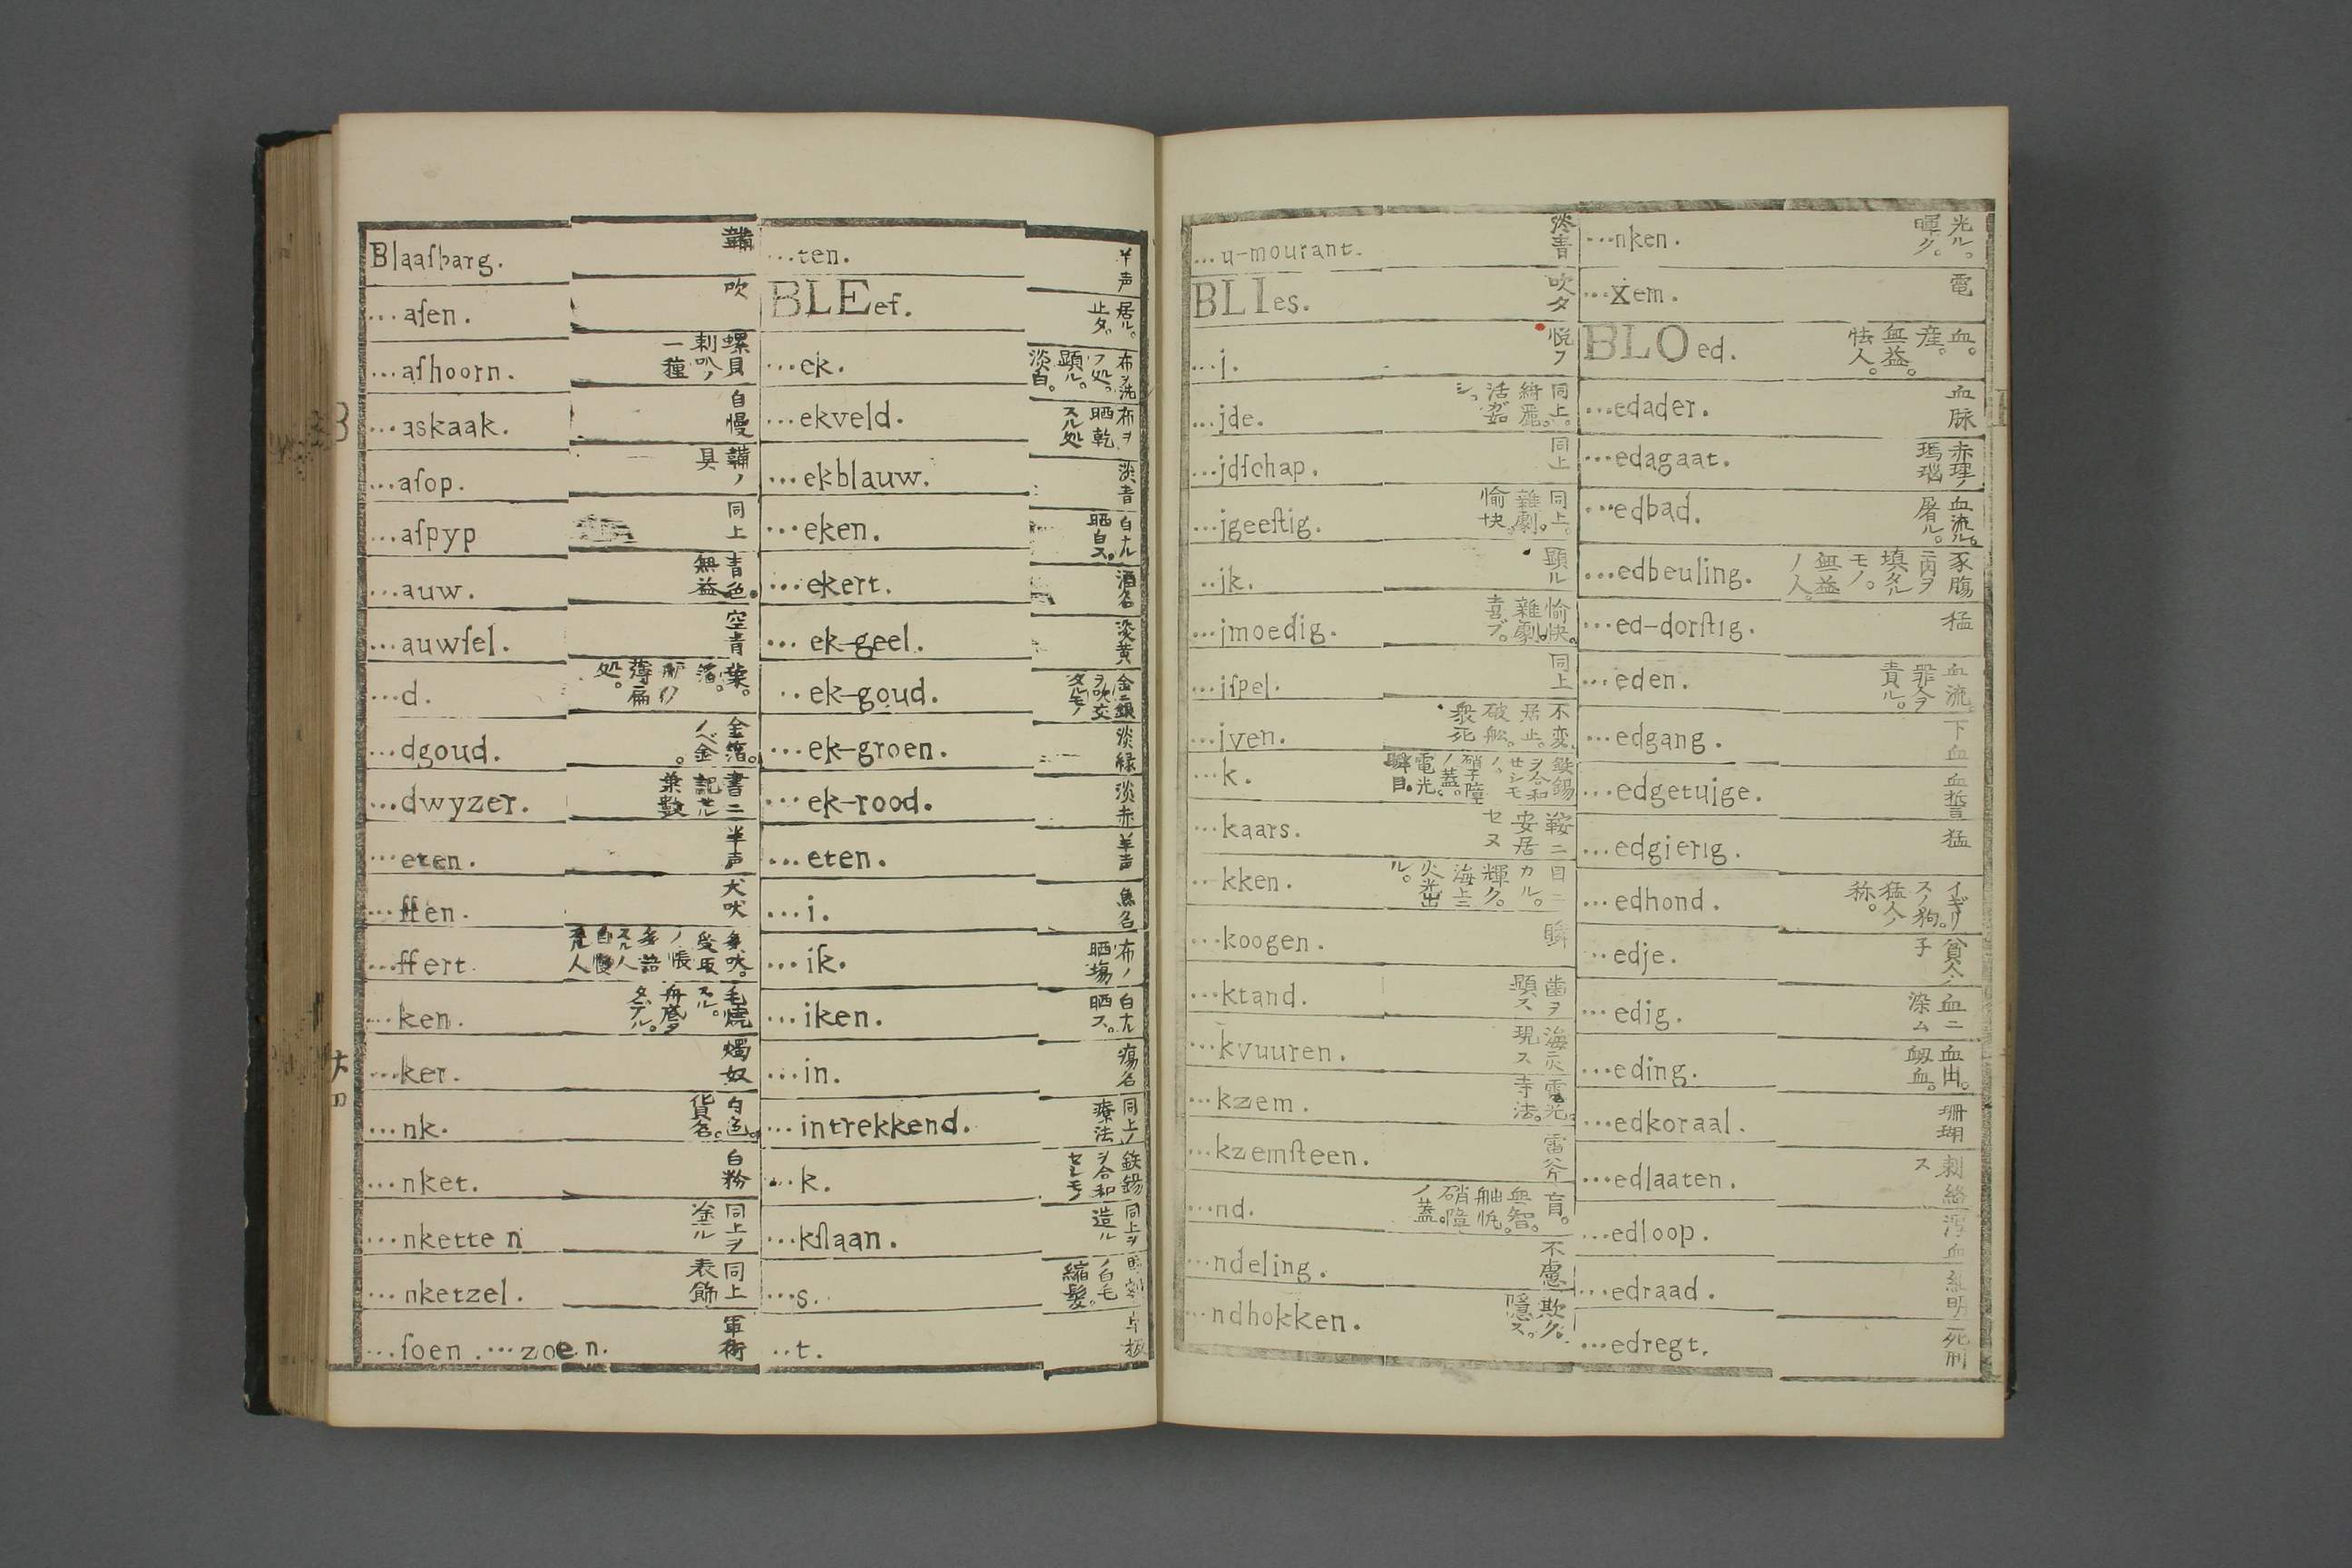 Blaaſbarg. 鞴
…aſen. 吹
…aſhoorn. 螺貝 刺叭ノ 一種
…askaak. 自慢
…aſop. 鞴ノ 具
…aſpyp 同上
…auw. 青色。 無益
…auwſel. 空青
…d. 葉。 箔。 薄扁 処。
…dgoud. 金箔。 ノベ金。
…dwyzer. 書ニ 記セル 葉数
…eten. 羊声
…ffen. 犬吠
…ffert. 多吠。 受取 ノ帳 多語 スル人 自慢 スル人
…ken. 毛焼 スル。 舟底ヲ タデル。
…ker. 燭奴
…nk. 白色。 貨名。
…nket. 白粉
…nketten 同上ヲ 塗ル
…nketzel. 同上 表飾
…ſoen. …zoen. 軍術
…ten. 羊声
BLEef. 居ル。 止タ。
…ek. 布ヲ洗 フ処。 顕ル。 淡白。
…ekveld. 布ヲ 晒乾 スル処
…ekblauw. 淡青
…eken. 白ナル 晒白ス。
…ekert. 酒名
…ek-geel. 淡黄
…ek-goud. 金ニ銀 ヲ吹交 タルモノ
…ek-groen. 淡緑
…ek-rood. 淡赤
…eten. 羊声
…i. 魚名
…ik. 布ノ 晒場
…iken. 白ナル 晒ス。
…in. 瘍名
…intrekkend. 同上ノ 療法
…k. 鉄錫 ヲ合和 セレモノ
…kſlaan. 同上ヲ 造ル
…s. ノ白毛 縮髪。
…t.
…u-mourant. 淡青
BLIes. 吹タ
…j. 悦フ
…jde. 同上。 綺麗。 活ガ如シ。
…jdſchap. 同上
…jgeeſtig. 同上。 雜劇。 愉快。
…jk. 顕ル
…jmoedig. 愉快。 雜劇。 喜ブ。
…jſpel. 同上
…jven. 不変。 居止。 破舩。 衆死
…k. 鉄錫 ヲ合和 セシモ ノ。 硝子障 ノ蓋。 電光。 瞬目。
…kaars. 鞍ニ 安居 セヌ
…kken. 目ニ カル。 輝ク。 海上ニ 火光出 ル。
…koogen. 瞬
…ktand. 歯ヲ 顕ス
…kvuuren. 海ニ火 現ス
…kzem. 電光。 寺法。
…kzemſteen. 雷斧
…nd. 盲。 無智。 舳𢂽。 硝障 ノ蓋。
…ndeling. 不慮
…ndhokken. 欺ク。 隠ス。
…nken. 光ル。 暉ク。
…xem. 電
BLOed. 血。 産。 無益。 怯人。
…edader. 血脉
…edagaat. 赤理ノ 瑪瑙
…edbad. 血流ル。 屠ル。
…edbeuling. 豕腸 ニ肉ヲ 填タル モノ。 無益 ノ人。
…ed-dorſtig. 猛
…eden. 血流。 罪人ヲ 責ル。
…edgang. 下血
…edgetuige. 血誓
…edgierig. 猛
…edhond. イギリ スノ狗。 猛人ノ 称。
…edje. 貧人ノ 子
…edig. 血ニ 染ム
…eding. 血出。 衂血。
…edkoraal. 珊瑚
…edlaaten. 刺絡 ス
…edloop. 瀉血
…edraad. 糺明
…edregt. 死刑